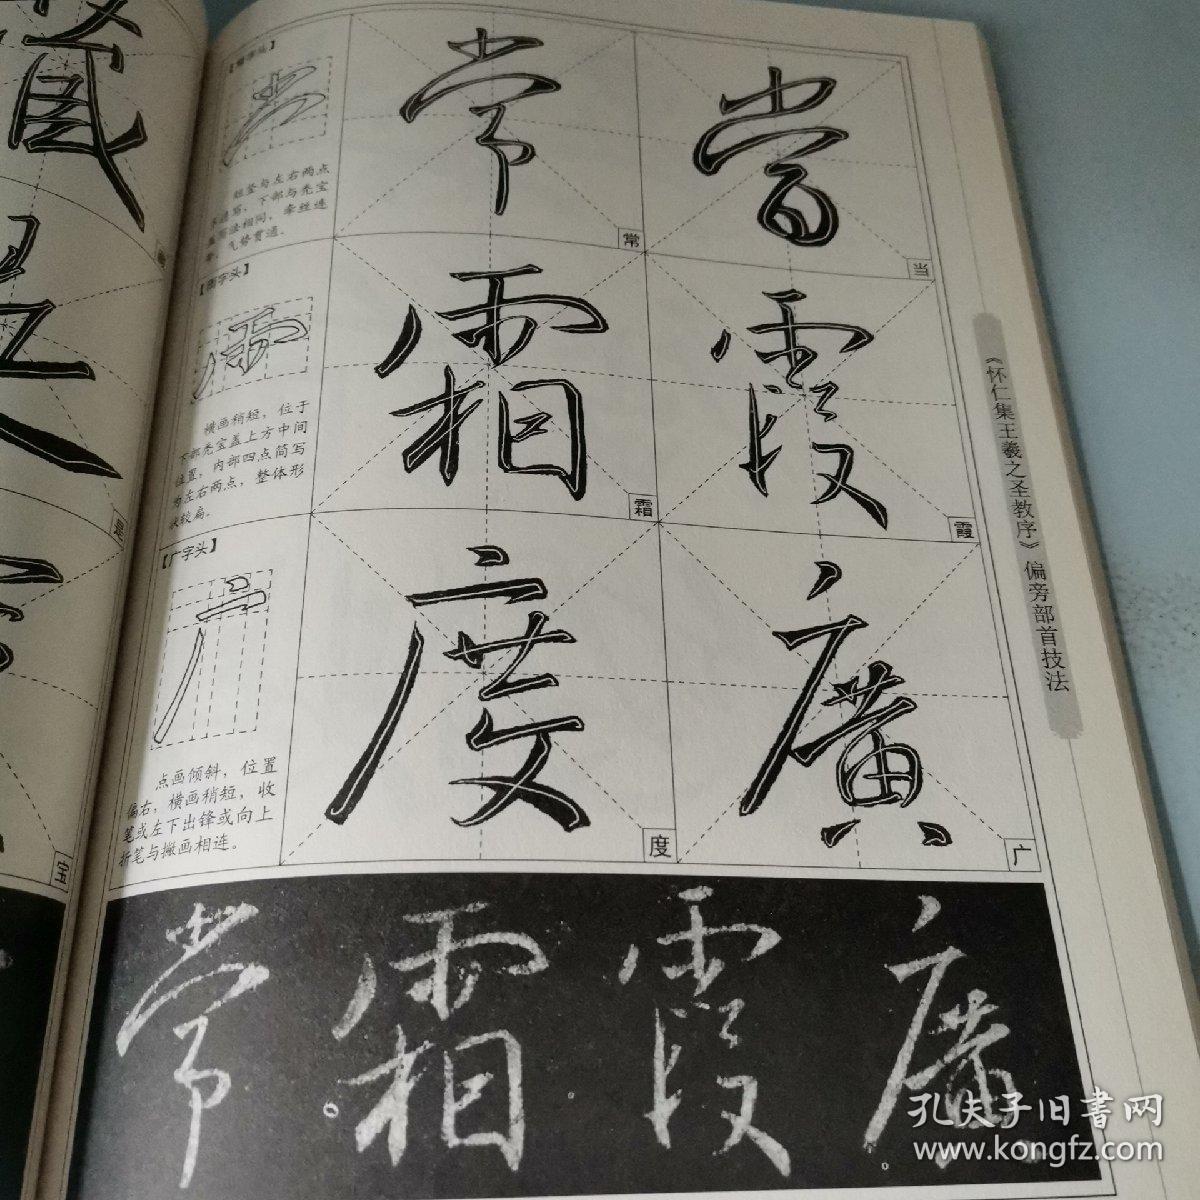 【常字头】
短竖与左右两点
写法相同，牵丝连
气势贯通。
【雨字头】
横画稍短，位于
下部秃宝盖上方中间
位置，内部四点简写
为左右两点，整体形
状较扁。
【广字头】
点画倾斜，位置
偏右，横画稍短，收
笔或左下出锋或向上
折笔与撇画相连。
常
常
當
当
霜
霜
霞
霞
度
度
廣
广
《怀仁集王羲之圣教序》偏旁部首技法
是
宝
常霜霞廣
孔夫子旧书网
www.kongfz.com